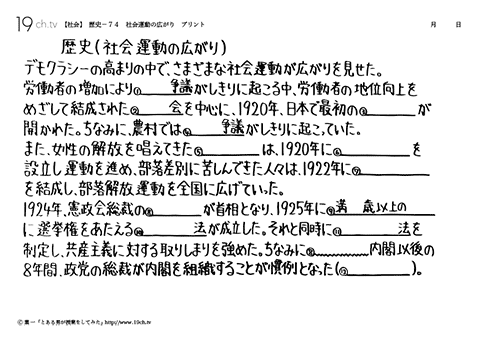 19ch.tv 【社会】 歴史－７４ 社会運動の広がり プリント 月 日
歴史(社会運動の広がり)
デモクラシーの高まりの中で、さまざまな社会運動が広がりを見せた。
労働者の増加により①____争議がしきりに起こる中、労働者の地位向上を
めざして結成された②____会を中心に、1920年、日本で最初の③______が
開かれた。ちなみに、農村では④____争議がしきりに起こっていた。
また、女性の解放を唱えてきた⑤________は、1920年に⑥________を
設立し運動を進め、部落差別に苦しんできた人々は、1922年に⑦________
を結成し、部落解放運動を全国に広げていった。
1924年、憲政会総裁の⑧______が首相となり、1925年に⑨満__歳以上の____
に選挙権をあたえる⑩______法が成立した。それと同時に⑪______法を
制定し、共産主義に対する取りしまりを強めた。ちなみに⑧______内閣以後の
8年間、政党の総裁が内閣を組織することが慣例となった(⑫________)。
Ⓒ葉一「とある男が授業をしてみた」http://www.19ch.tv